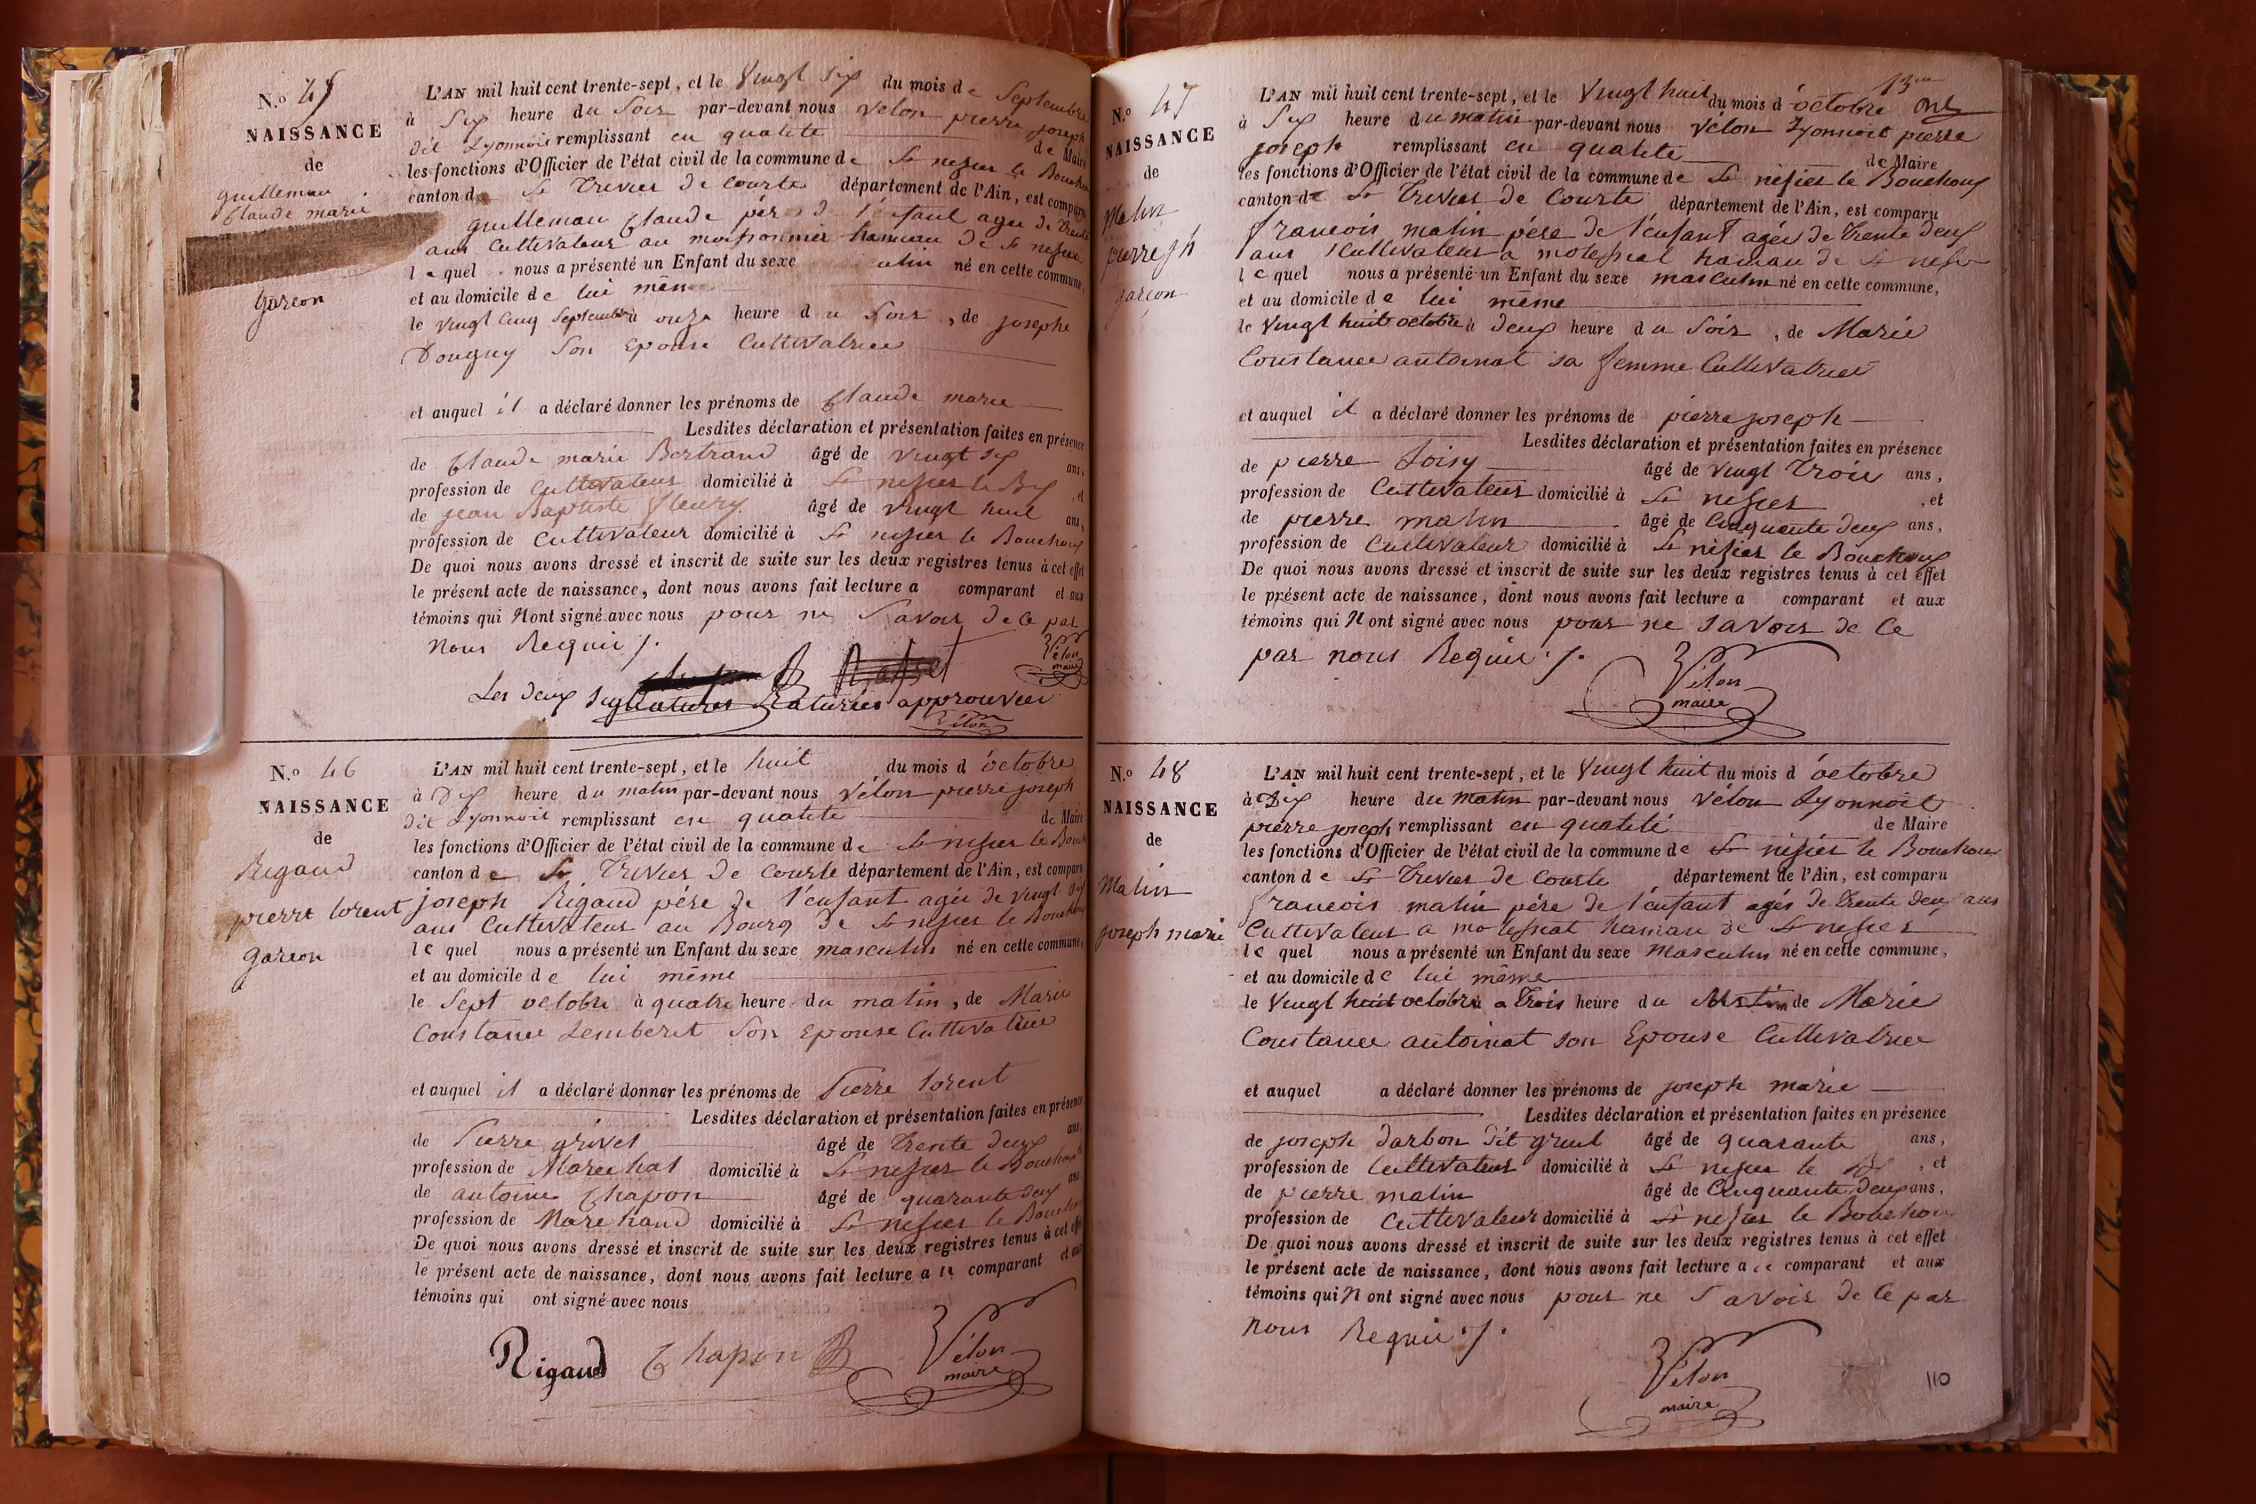 N.o 45
NAISSANCE
de
guilleman
Claude marie
garcon
L'AN mil huit cent trente-sept, et le Vingt Six du mois de Septembre
à Six heure du Soir par-devant nous vélon pierre joseph
dit Lyonnois remplissant en qualité de Maire
les fonctions d'Officier de l'état civil de la commune de St nésier le Bouchoux
canton de St Trivier de Courte département de l'Ain, est comparu
guilleman Claude pére de l'énfant agée de trente
ans Cultivateur au hameau de St nésier
lequel nous a présenté un Enfant du sexe né en cette commune,
et au domicile de lui même
le vingt Cinq Septembre à onze heure du Soir, de josephe
Douguy Son Epouse Cultivatrice
et auquel il a déclaré donner les prénoms de Claude marie
Lesdites déclaration et présentation faites en présence
de Claude marie Bertrand âgé de vingt six ans,
profession de Cultivateur domicilié à St nésier le Bx, et
de jean Baptiste fleury âgé de vingt huit ans,
profession de Cultivateur domicilié à St nésier le Bouchoux
De quoi nous avons dressé et inscrit de suite sur les deux registres tenus à cet effet
le présent acte de naissance, dont nous avons fait lecture a comparant et aux
témoins qui N'ont signé avec nous pour ne Savoir de Ce par
nous Requis /.
Vélon
maire
Les deux signatures Raturées approuvées
Vélon
N.o 46
NAISSANCE
de
Rigaud
pierre lorent
garcon
L'AN mil huit cent trente-sept, et le huit du mois d'octobre
à Dix heure du matin par-devant nous vélon pierre joseph
dit Lyonnois remplissant en qualité de Maire
les fonctions d'Officier de l'état civil de la commune de St nésier le Bouch
canton de St Trivier de Courte département de l'Ain, est comparu
joseph Rigaud pére de l'énfant agée de vingt six
ans Cultivateur au Bourg de St nésier le Bouchoux
lequel nous a présenté un Enfant du sexe masculin né en cette commune,
et au domicile de lui même
le Sept octobre à quatre heure du matin, de Marie
Constance Lemberet Son Epouse Cultivatrice
et auquel il a déclaré donner les prénoms de Pierre lorent
Lesdites déclaration et présentation faites en présence
de Pierre grivet âgé de trente deux ans,
profession de Marechal domicilié à St nésier le Bouchoux
de antoine Chapon âgé de quarante deux ans
profession de Marchand domicilié à St nésier le Bouchoux
De quoi nous avons dressé et inscrit de suite sur les deux registres tenus à cet effet
le présent acte de naissance, dont nous avons fait lecture au comparant et aux
témoins qui ont signé avec nous
Rigaud Chapon Vélon
maire
13me
N.o 47
NAISSANCE
de
Matin
pierre jh
garçon
L'AN mil huit cent trente-sept, et le Vingt huit du mois d'octobre
à Six heure du matin par-devant nous vélon Lyonnoit pierre
joseph remplissant en qualité de Maire
les fonctions d'Officier de l'état civil de la commune de St nésier le Bouchoux
canton de St Trivier de Courte département de l'Ain, est comparu
francois matin pére de l'énfant agée de trente deux
ans Cultivateur a hameau de St nésier
lequel nous a présenté un Enfant du sexe masculin né en cette commune,
et au domicile de lui même
le Vingt huit octobre à deux heure du Soir, de Marie
Constance antoinat sa femme Cultivatrice
et auquel il a déclaré donner les prénoms de pierre joseph
Lesdites déclaration et présentation faites en présence
de pierre Loisy âgé de vingt trois ans,
profession de Cultivateur domicilié à St nésier, et
de pierre matin âgé de Cinquante deux ans,
profession de Cultivateur domicilié à St nésier le Bouchoux
De quoi nous avons dressé et inscrit de suite sur les deux registres tenus à cet effet
le présent acte de naissance, dont nous avons fait lecture a comparant et aux
témoins qui N'ont signé avec nous pour ne Savoir de Ce
par nous Requis ./.
Vélon
maire
N.o 48
NAISSANCE
de
Matin
joseph marie
L'AN mil huit cent trente-sept, et le Vingt huit du mois d'octobre
à Dix heure du matin par-devant nous vélon Lyonnoit
pierre joseph remplissant en qualité de Maire
les fonctions d'Officier de l'état civil de la commune de St nésier le Bouchoux
canton de St Trivier de Courte département de l'Ain, est comparu
francois matin pére de l'énfant agés de trente deux ans
Cultivateur a hameau de St nésier
lequel nous a présenté un Enfant du sexe Masculin né en cette commune,
et au domicile de lui même
le Vingt huit octobre a trois heure du Matin de Marie
Constance antoinat son Epouse Cultivatrice
et auquel a déclaré donner les prénoms de joseph marie
Lesdites déclaration et présentation faites en présence
de joseph darbon dit âgé de quarante ans,
profession de Cultivateur domicilié à St nésier le Bx, et
de pierre matin âgé de Cinquante deux ans,
profession de Cultivateur domicilié à St nésier le Bouchoux
De quoi nous avons dressé et inscrit de suite sur les deux registres tenus à cet effet
le présent acte de naissance, dont nous avons fait lecture a ce comparant et aux
témoins qui N'ont signé avec nous pour ne Savoir de Ce par
nous Requis ./.
Vélon
maire
110